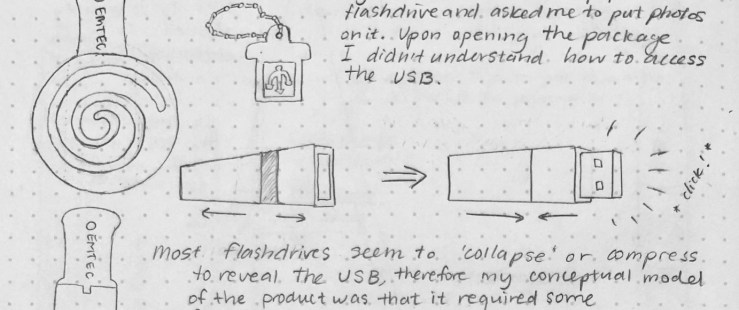 OEMTEC
flashdrive and asked me to put photos
on it. Upon opening the package
I didn't understand how to access
the USB.
*click!*
OEMTEC
most flashdrives seem to 'collapse' or compress
to reveal the USB, therefore my conceptual model
of the product was that it required some